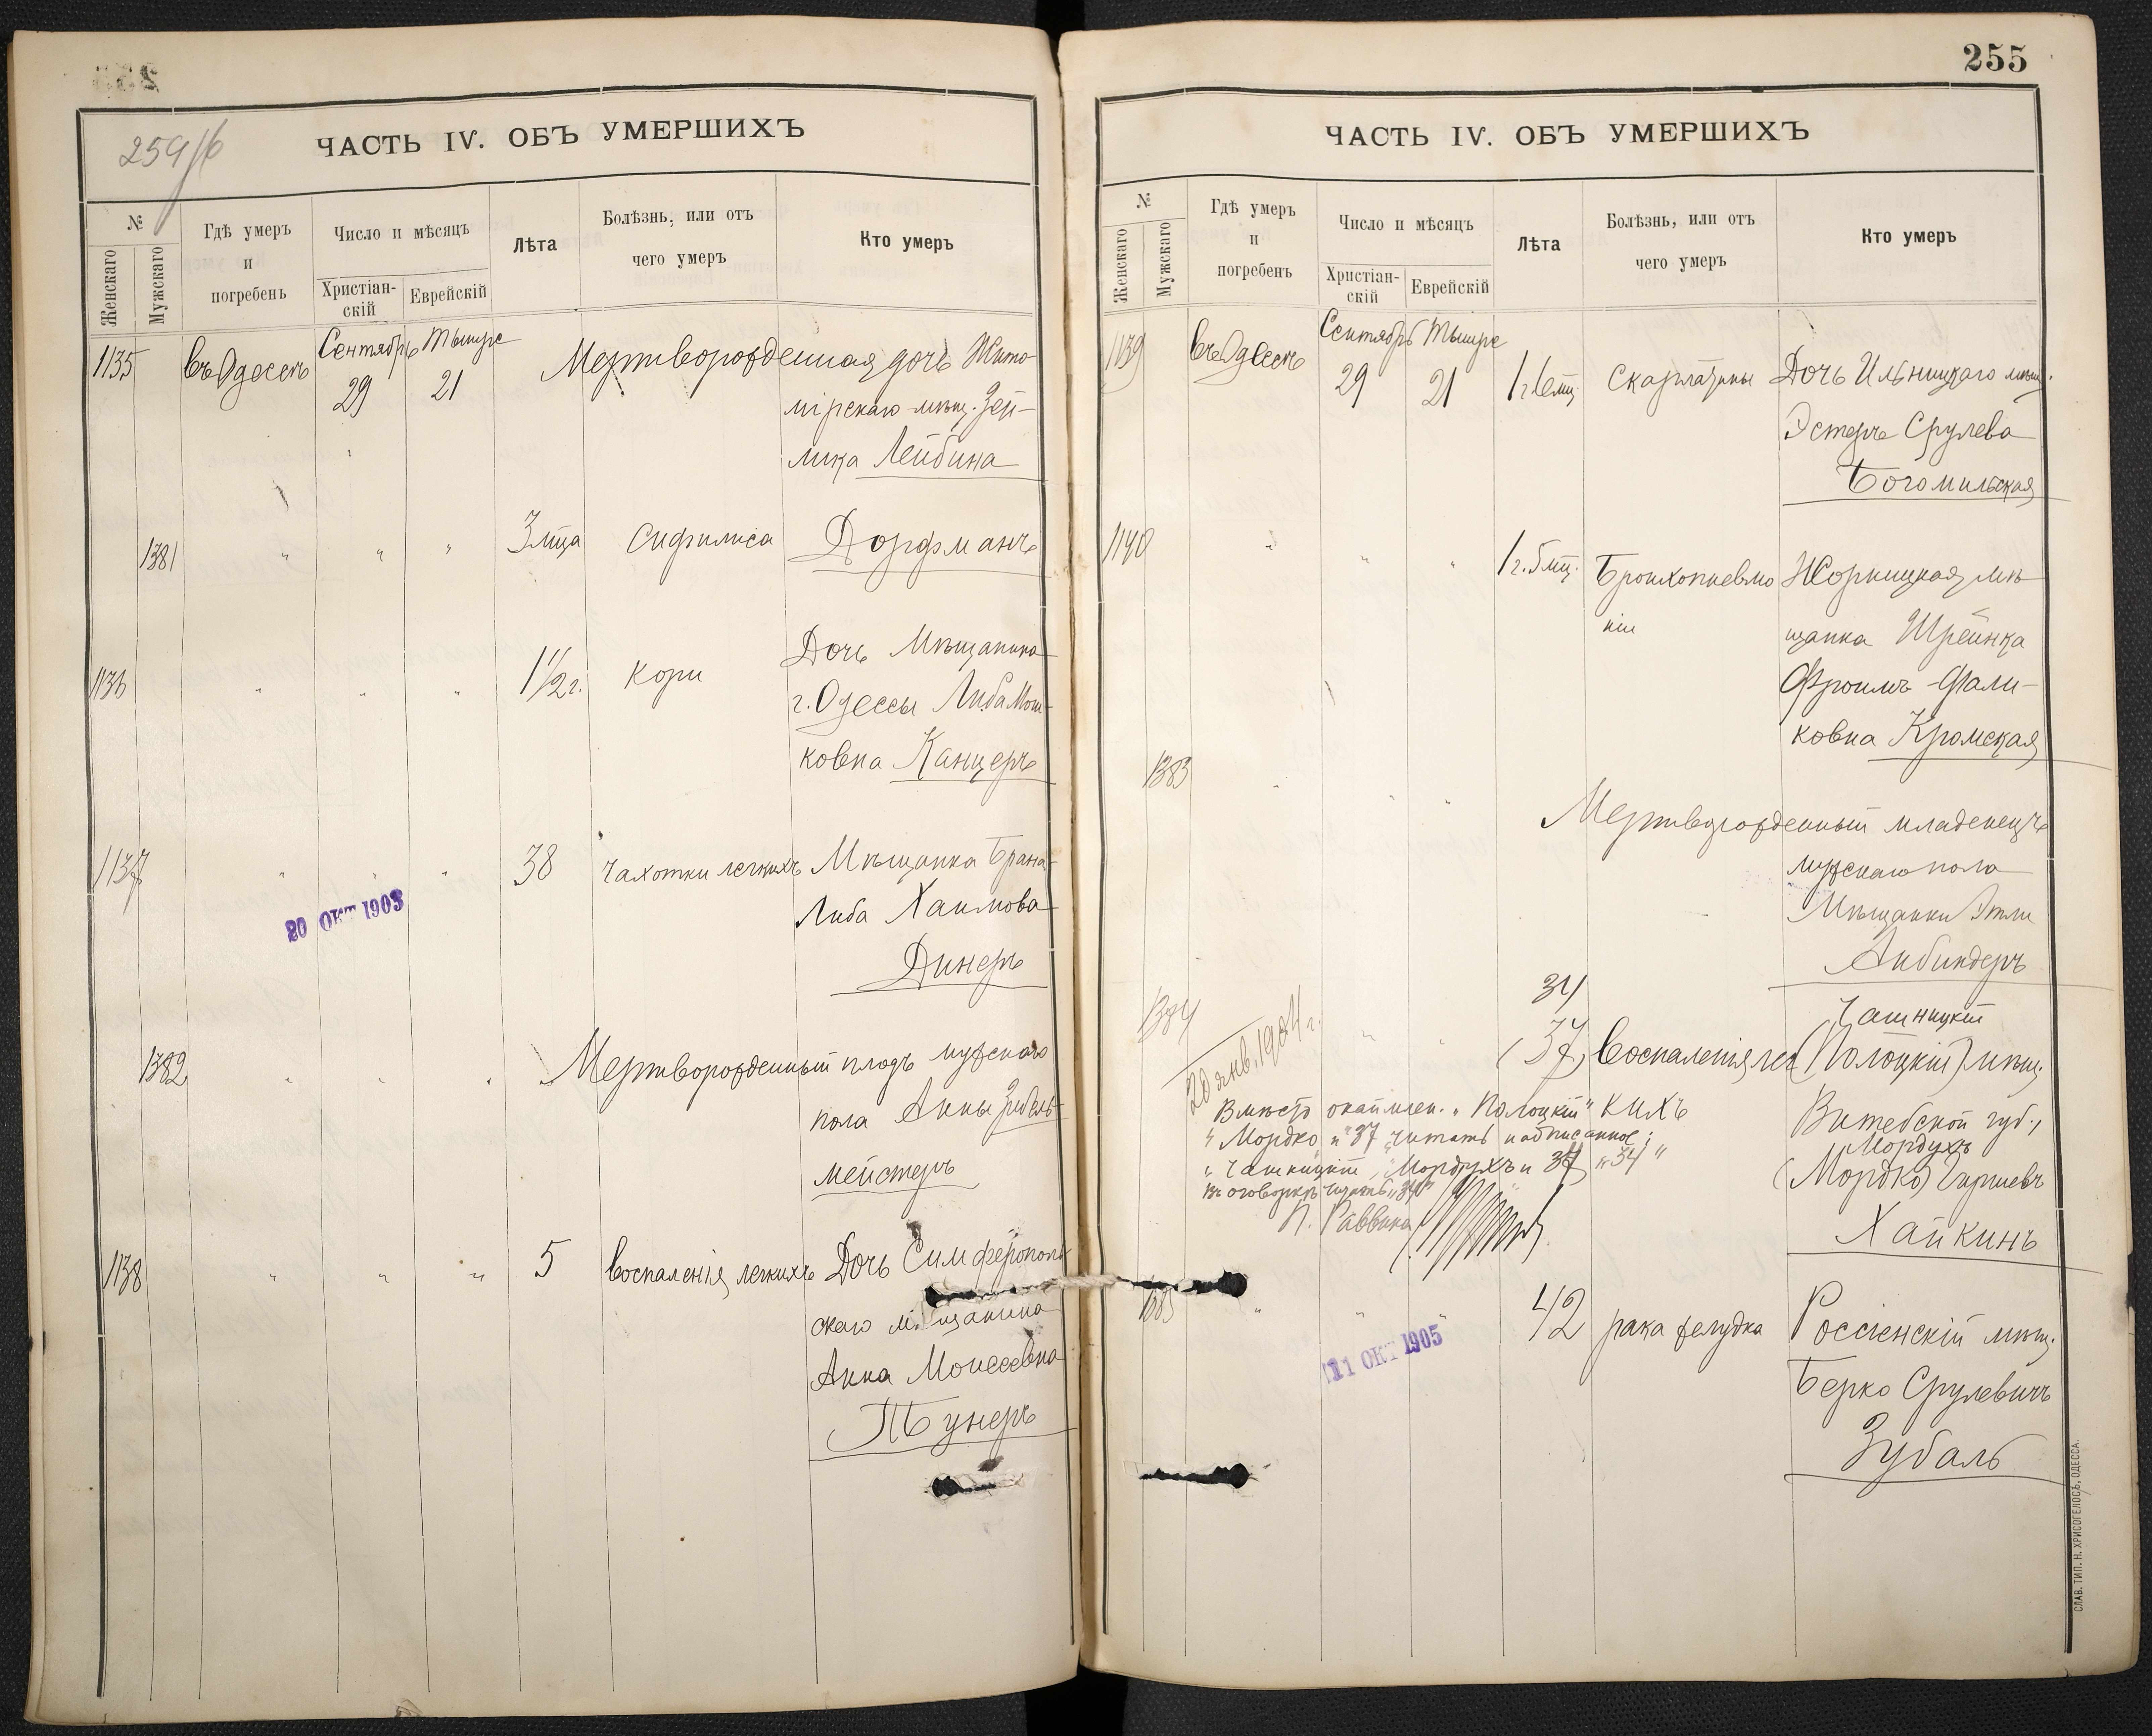 259/б
ЧАСТЬ IV. ОБЪ УМЕРШИХЪ
№
Женскаго
Мужскаго
Гдѣ умеръ
и
погребенъ
Число и мѣсяцъ
Христіан-
скій
Еврейскій
Лѣта
Болѣзнь, или отъ
чего умеръ
Кто умеръ
1135 въ Одессѣ Сентябрь 29 Тышре 21 Мертворожденная дочь Жито-
мірскаго мѣщ. Зей-
лика Лейбина
1381 " " " 3 мца Сифилиса Дорфманъ
1136 " " " 1 1/2 г. Кори Дочь Мѣщанина
г. Одессы Либа Мош-
ковна Канцеръ
1137 " " " 38 Чахотки легкихъ Мѣщанка Брана-
Либа Хаимова
Динеръ
20 ОКТ 1903
1382 " " " Мертворожденный плодъ мужскаго
пола Анны Зибель-
мейстеръ
1138 " " " 5 Воспаленія легкихъ Дочь Симферополь-
скаго мѣщанина
Анна Моисеевна
Тунеръ
255
ЧАСТЬ IV. ОБЪ УМЕРШИХЪ
№
Женскаго
Мужскаго
Гдѣ умеръ
и
погребенъ
Число и мѣсяцъ
Христіан-
скій
Еврейскій
Лѣта
Болѣзнь, или отъ
чего умеръ
Кто умеръ
1139 въ Одессѣ Сентябрь 29 Тышре 21 Скарлатины Дочь Ильницкаго мѣщ.
Эстеръ Срулева
Богомильская
1140 " " " 1 г. 5 мц. Бронхопневмо Жорницкая мѣ-
ніи щанка Шрейнка
Фроимъ-Фали-
ковна Кромская
1383 " " " Мертворожденный младенецъ
мужскаго пола
Мѣщанки Этли
Анбиндеръ
34 Чашницкій
1384 " " (37) Воспаленія лег (Полоцкій) мѣщ.
20 янв. 1904 г.
Вмѣсто окаймлен. "Полоцкій" кихъ Витебской губ.,
"Мордко" и "37" читать надписанное: Мордухъ
"Чашницкій", "Мордухъ" и 34 "34" (Мордко) Гиршевъ
Въ оговоркѣ читать "34" Хайкинъ
П. Раввина
1385 " " " 42 рака желудка Россіенскій мѣщ.
Берко Срулевичъ
Зубаль
11 ОКТ 1905
СЛАВ. ТИП. Н. ХРИСОГЕЛОСЪ, ОДЕССА.